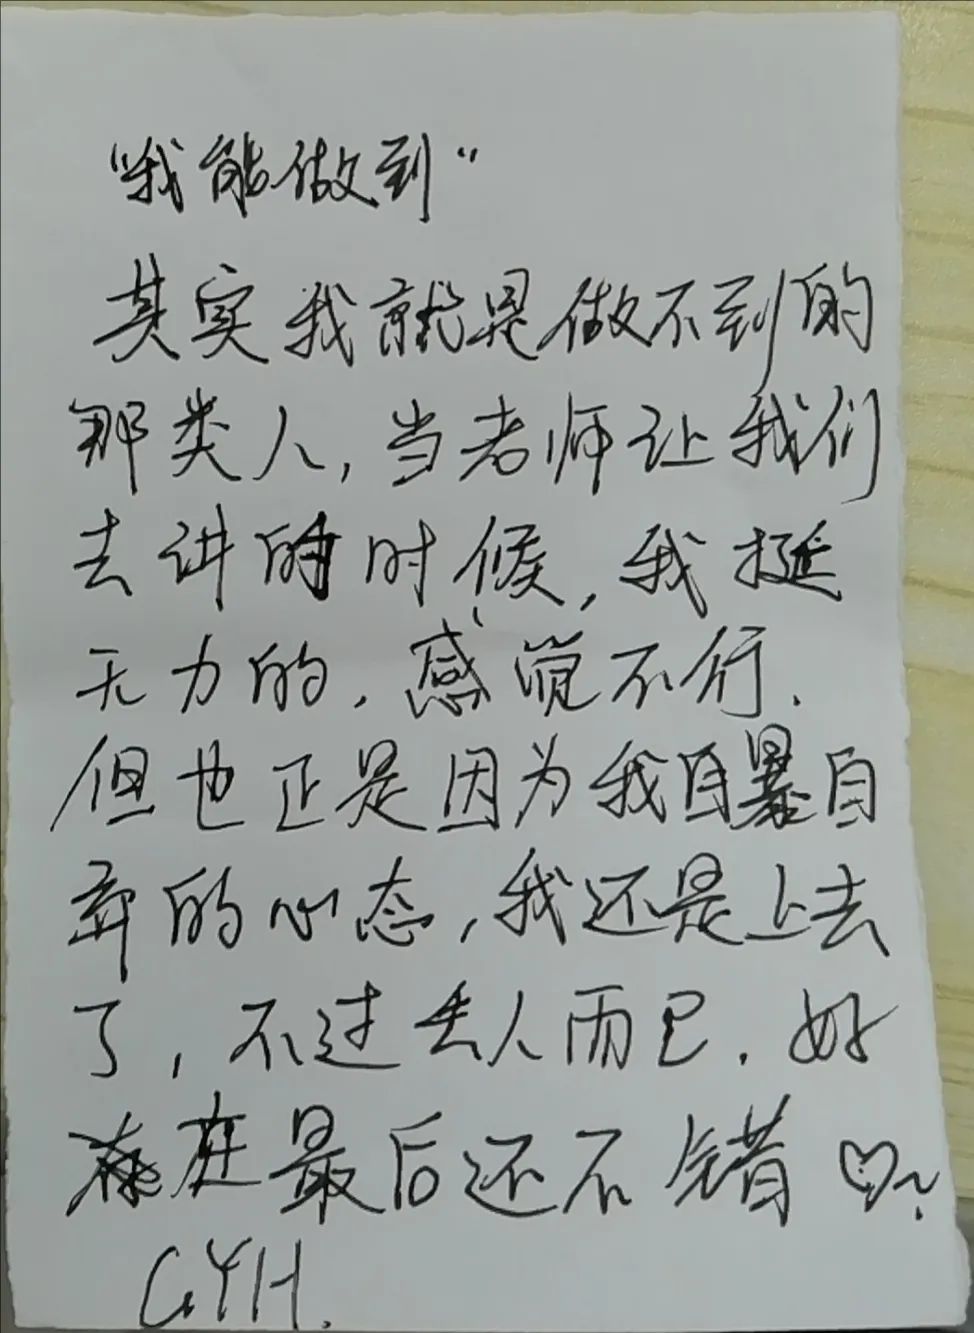 “我能做到”
其实我就是做不到的
那类人,当老师让我们
去讲的时候,我挺
无力的,感觉不行.
但也正是因为我自暴自
弃的心态,我还是上去
了,不过丢人而已.好
在最后还不错♡~.
GYH.